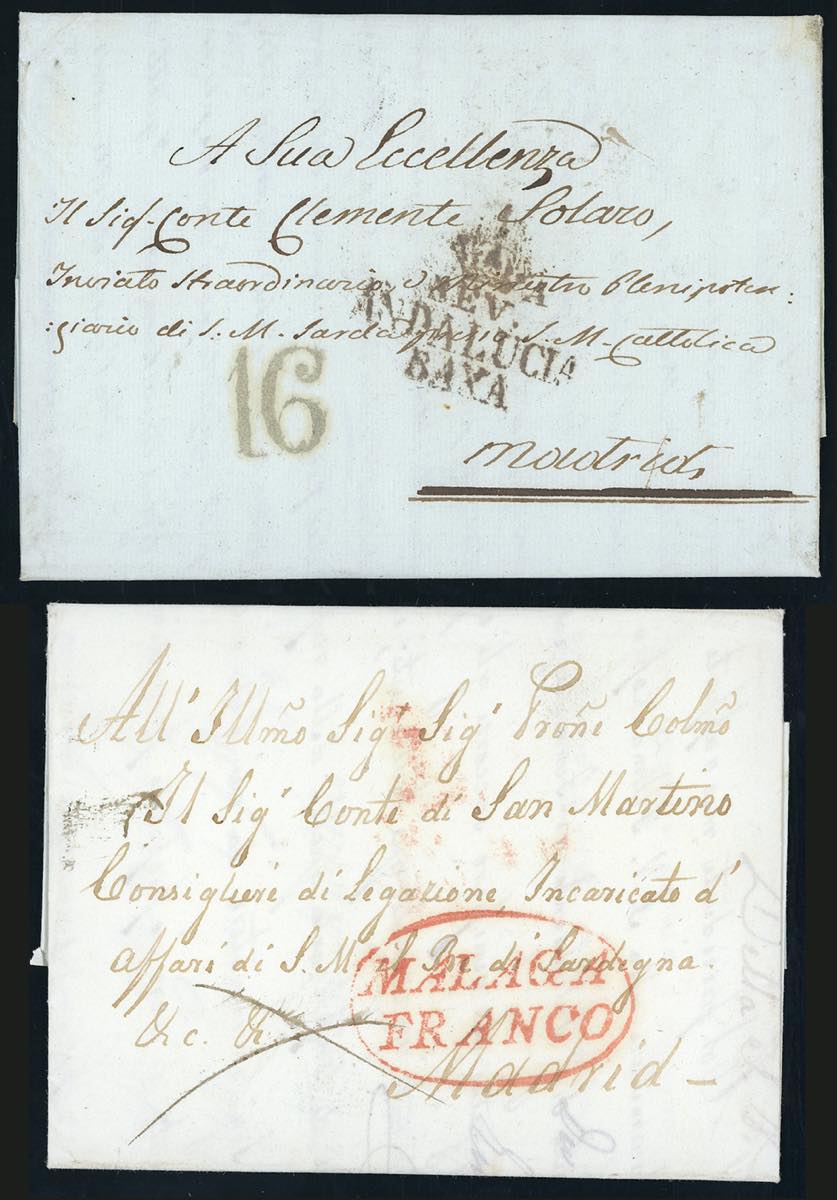 A Sua Eccellenza
Il Sigr. Conte Clemente Solaro,
Inviato Straordinario, e Ministro Plenipoten:
:ziario di S. M. Sarda presso S. M. Cattolica
ANDALUCIA
BAXA
16
Madrid,
All' Illmo Sigr Sigr Prone Colmo
Il Sigr Conte di San Martino
Consigliere di Legazione Incaricato d'
affari di S. M. il Re di Sardegna.
&c. &c.
MALAGA
FRANCO
Madrid